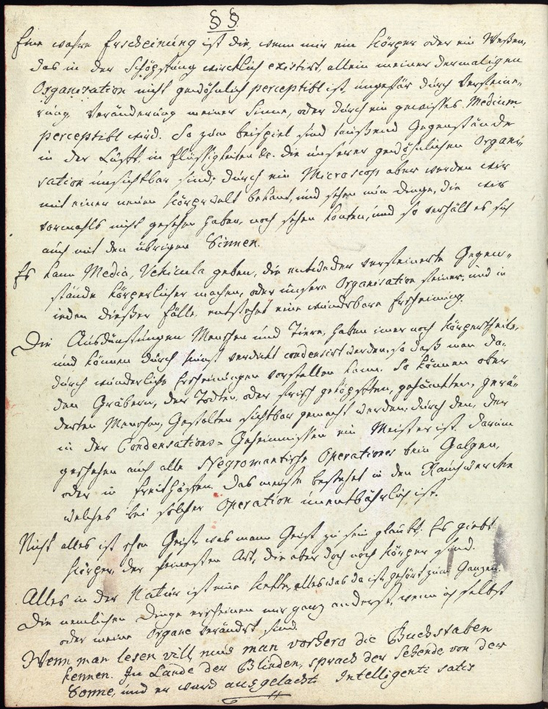 §§
Eine wahre Erscheinung ist die, wenn mir ein Körper oder ein Weßen,
das in der Schöpfung würcklich existirt, allein meiner dermaligen
Organisation nicht gewöhnlich perceptibl ist, ungefär durch Verfeine-
rung Veränderung meiner Sinne, oder durch ein gewisses Medium
perceptibl wird. So zum beispiel sind tausend Gegenstände
in der Lufft, in Flüssigkeiten &c. die unserer gewöhnlichen Organi-
sation unsichtbar sind; durch ein Microscop aber werden wir
mit einer neuen Körperwelt bekant, und sehen nun Dinge, die wir
vormahls nicht gesehen haben, noch sehen konten, und so verhält es sich
auch mit den übrigen Sinnen.
Es kann Media, Vehicula geben, die entweder verfeinerte Gegen-
stände körperlicher machen, oder unsere Organisation feiner, und in
jeden dießer fälle entstehet eine wunderbare Erscheinung
Die Ausdünstungen Menschen und Tiere, haben imer noch Körpertheile,
und können durch kunst verdickt condensirt werden, so daß man da-
durch wunderliche Erscheinungen vorstellen kann. So können ober
den Gräbern, der Todten, oder frisch geköpften, gehänkten, gerä-
derten Menschen, Gestalten sichtbar gemacht werden, durch den, der
in der Condensations-Geheimnissen ein Meister ist. Darum
geschehen auch alle Negromantische Operationes beim Galgen,
oder in Freithöfen. Das meiste bestehet in den Rauchwercken
welches bei solcher Operation unentbährlich ist.
Nicht alles ist eben Geist, was man Geist zu sein glaubt. Es giebt
Körper der feinesten Art, die aber doch noch Körper sind.
Alles in der Natur ist eine Kette, alles was da ist, gehört zum Ganzen.
Die nemlichen Dinge erscheinen mir ganz anderst, wenn ich selbst
oder meine Organe verändert sind.
Wenn man lesen will, muß man vorhero die Buchstaben
kennen. Im Lande der Blinden, sprach der Sehende von der
Sonne, und er ward ausgelacht. Intelligenti satis